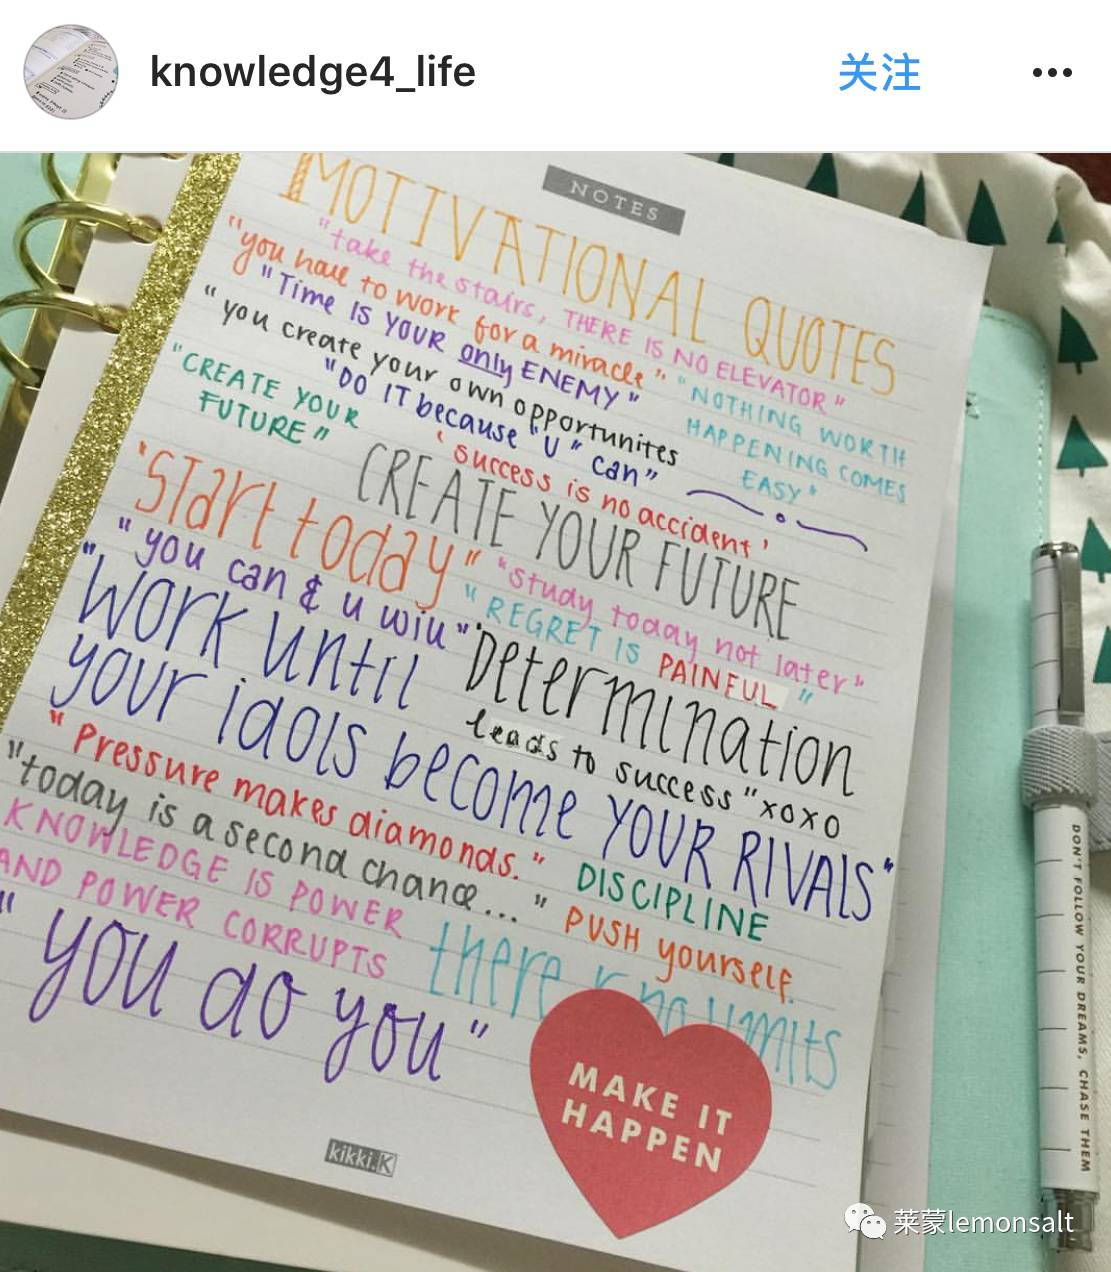 knowledge4_life
关注
NOTES
MOTIVATIONAL QUOTES
"take the stairs, THERE IS NO ELEVATOR"
"you have to work for a miracle"
"Time IS YOUR only ENEMY"
"NOTHING WORTH
HAPPENING COMES
EASY"
"you create your own opportunites
"DO IT because "U" can"
"CREATE YOUR
FUTURE"
'success is no accident'
CREATE YOUR FUTURE
'Start today"
"study today not later"
"you can & u wiu"
"REGRET IS PAINFUL"
"Work until
your idols become YOUR RIVALS"
"Determination
leads to success" xoxo
"Pressure makes diamonds."
"today is a second chance..."
DISCIPLINE
KNOWLEDGE IS POWER
AND POWER CORRUPTS
PUSH yourself.
"you do you"
there r no limits
MAKE IT
HAPPEN
kikki.K
DON'T FOLLOW YOUR DREAMS, CHASE THEM
莱蒙lemonsalt